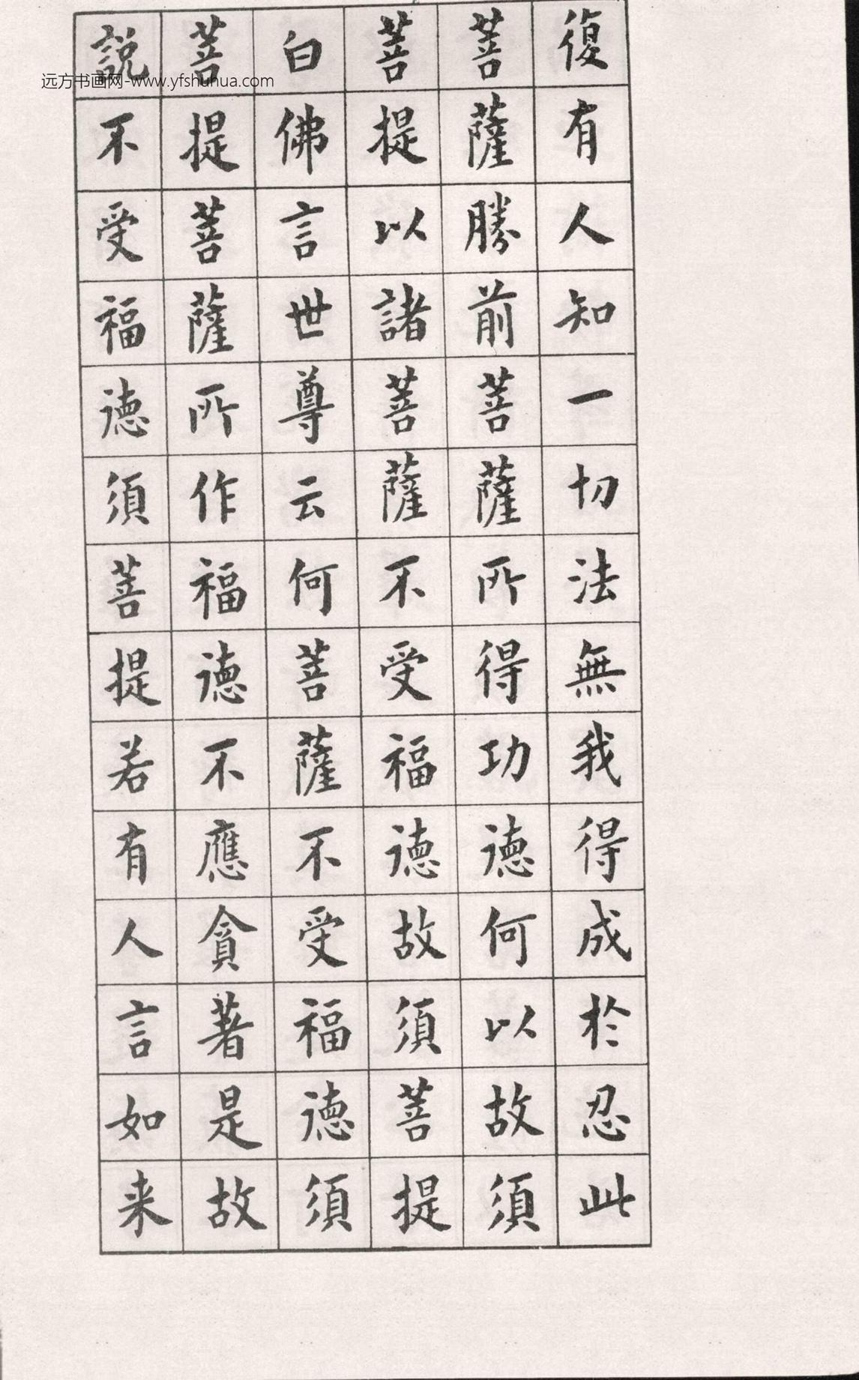 復有人知一切法無我得成於忍此
菩薩勝前菩薩所得功徳何以故須
菩提以諸菩薩不受福徳故須菩提
白佛言世尊云何菩薩不受福徳須
菩提菩薩所作福徳不應貪著是故
説不受福徳須菩提若有人言如来
远方书画网-www.yfshuhua.com